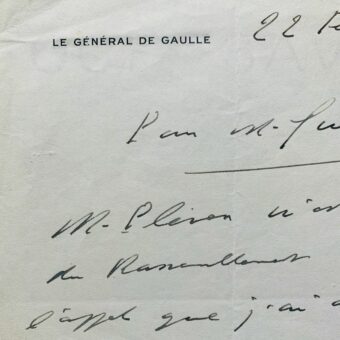 LE GÉNÉRAL DE GAULLE
22
Pour M.
M. Pleven n'es
du Rassemblement
l'appel que j'ai